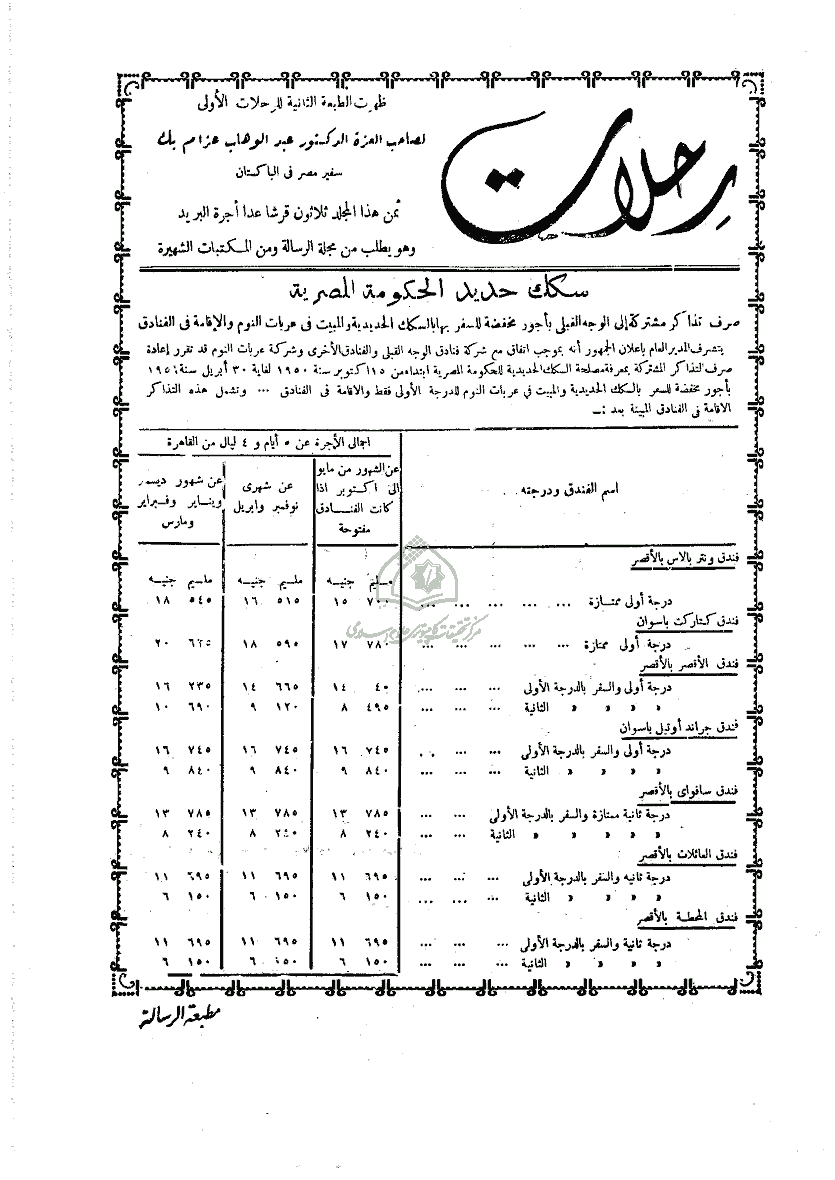 رحلات
ظهرت الطبعة الثانية للرحلات الأولى
لصاحب العزة الدكتور عبد الوهاب عزام بك
سفير مصر فى الباكستان
ثمن هذا المجلد ثلاثون قرشا عدا أجرة البريد
وهو يطلب من مجلة الرسالة ومن المكتبات الشهيرة
سكك حديد الحكومة المصرية
صرف تذاكر مشتركة إلى الوجه القبلى بأجور مخفضة للسفر بها بالسكك الحديدية والمبيت فى عربات النوم والإقامة فى الفنادق
يتشرف المدير العام باعلان الجمهور أنه بموجب اتفاق مع شركة فنادق الوجه القبلى والفنادق الأخرى وشركة عربات النوم قد تقرر إعادة
صرف التذاكر المشتركة بمعرفة مصلحة السكك الحديدية للحكومة المصرية ابتداء من ١٥ اكتوبر سنة ١٩٥٠ لغاية ٣٠ أبريل سنة ١٩٥١
بأجور مخفضة للسفر بالسكك الحديدية والمبيت في عربات النوم للدرجة الأولى فقط والاقامة فى الفنادق ... وتشمل هذه التذاكر
الاقامة فى الفنادق المبينة بعد :ـ
اسم الفندق ودرجته
اجمالى الأجرة عن ٥ أيام و ٤ ليال من القاهرة
عن الشهور من مايو الى اكتوبر اذا كانت الفنادق مفتوحة
عن شهرى نوفمبر وابريل
عن شهور ديسمبر ويناير وفبراير ومارس
مليم جنيه مليم جنيه مليم جنيه
فندق ونتر بالاس بالأقصر
درجة أولى ممتازة ... ... ... ... ... ٧٠٠ ١٥ ٥١٥ ١٦ ٥٤٥ ١٨
فندق كتاركت باسوان
درجة أولى ممتازة ... ... ... ... ... ٧٨٠ ١٧ ٥٩٥ ١٨ ٦٢٥ ٢٠
فندق الأقصر بالأقصر
درجة أولى والسفر بالدرجة الأولى ... ... ... ٤٠ ١٤ ٦٦٥ ١٤ ٢٣٥ ١٦
« « « « الثانية ... ... ... ٤٩٥ ٨ ١٢٠ ٩ ٦٩٠ ١٠
فندق جراند أوتيل باسوان
درجة أولى والسفر بالدرجة الأولى ... ... .. ٧٤٥ ١٦ ٧٤٥ ١٦ ٧٤٥ ١٦
« « « « الثانية ... ... ... ٨٤٠ ٩ ٨٤٠ ٩ ٨٤٠ ٩
فندق سافواى بالأقصر
درجة ثانية ممتازة والسفر بالدرجة الأولى ... ... ٧٨٥ ١٣ ٧٨٥ ١٣ ٧٨٥ ١٣
« « « « الثانية ... ... ٢٤٠ ٨ ٢٤٠ ٨ ٢٤٠ ٨
فندق العائلات بالأقصر
درجة ثانيه والسفر بالدرجة الأولى ... ... ... ٦٩٥ ١١ ٦٩٥ ١١ ٦٩٥ ١١
« « « « الثانية ... ... ... ١٥٠ ٦ ١٥٠ ٦ ١٥٠ ٦
فندق المحطة بالأقصر
درجة ثانية والسفر بالدرجة الأولى ... ... ... ٦٩٥ ١١ ٦٩٥ ١١ ٦٩٥ ١١
« « « « الثانية ... ... ... ١٥٠ ٦ ١٥٠ ٦ ١٥٠ ٦
مطبعة الرسالة